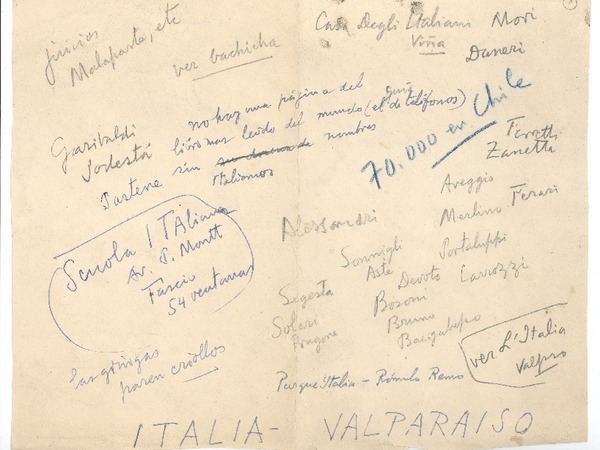 juicios
Malaparte, etc
ver bachicha
Casa Degli Italiani
Viña
Mori
Daneri
no hay una página del
libro mas leído del mundo (el guía de teléfonos)
sin de nombres
Italianos
Garibaldi
Jodestá
70.000 en Chile
Ferretti
Zanetta
Areggio
Merlino Ferari
Scuola ITAliana
Av. P. Montt
Fascio
54 ventanas
Alessandri
Sonnigli
Portaluppi
Aste
Devoto Carrozzi
Segesta
Bozoni
Solari
Bruno
Pongone
Bacigalupo
ver L'Italia
Valpso
las gringas
paren criollos
Parque Italia - Rómulo Remo
ITALIA - VALPARAISO